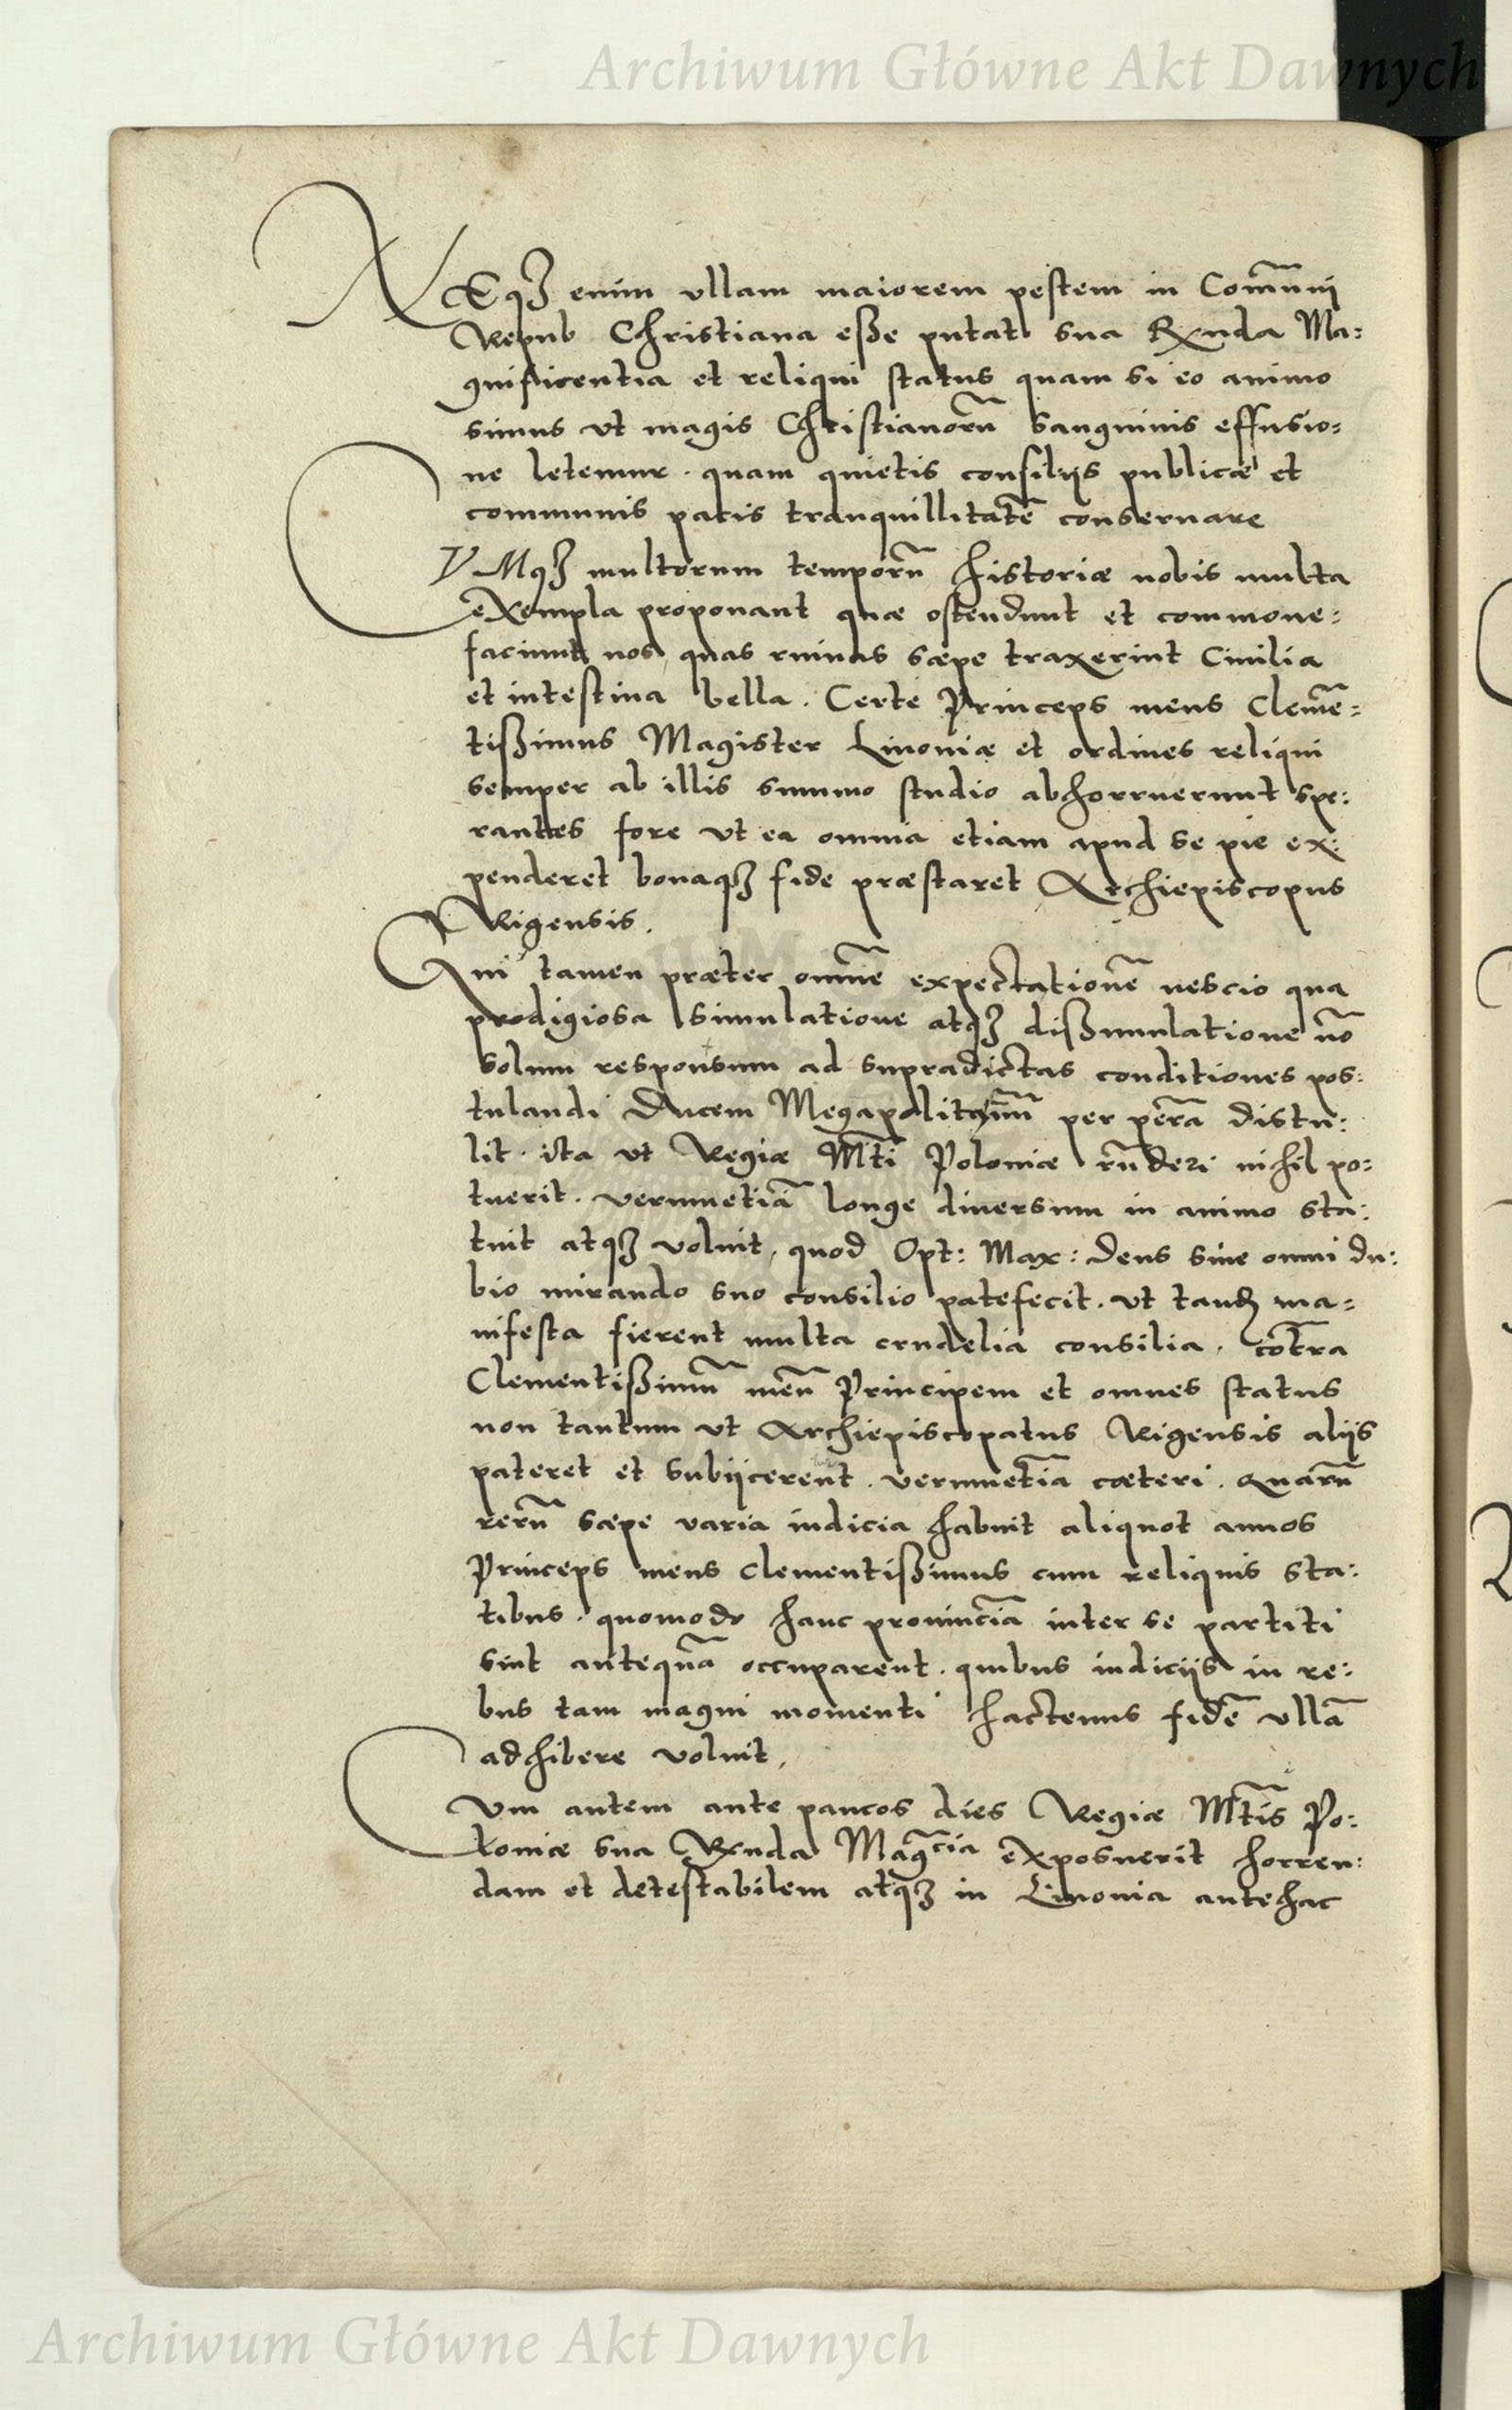 Archiwum Główne Akt Dawnych
NEqȝ enim vllam maiorem pestem in Com̃uni
Repub Christiana esse putat sua Rxnda Ma:
gnificentia et reliqui status quam si eo animo
simus vt magis Christianorũ sanguinis effusio:
ne letemur. quam quietis consilijs publicæ et
communis pacis tranquillitatẽ conseruare
CVMqȝ multorum temporũ historiæ nobis multa
exempla proponant quæ ostendunt et commone:
faciunt nos quas ruinas sæpe traxerint Ciuilia
et intestina bella. Certe Princeps meus Clemẽ=
tißimus Magister Liuoniæ et ordines reliqui
semper ab illis summo studio abhorruerunt spe:
rantes fore vt ea omnia etiam apud se pie ex:
penderet bonaqȝ fide præstaret Archiepiscopus
Rigensis.
Qui tamen præter omnẽ expectationẽ nescio qua
prodigiosa simulatione atqȝ dißimulatione nõ
solum responsum ad supradictas conditiones pos:
tulandi Ducem Megapolitanũ per distu:
lit. ita vt Regiæ Mti Poloniæ rñderi nichil po=
tuerit. verumetiã longe diuersum in animo sta:
tuit atqȝ voluit, quod Opt: Max: Deus sine omni du:
bio mirando suo consilio patefecit. vt tandẽ ma=
nifesta fierent multa crudelia consilia. cõtra
Clementißimũ meũ Principem et omnes status
non tantum vt Archiepiscopatus Rigensis alijs
pateret et subijcerent. verumetiã cæteri. Quarũ
rerũ sæpe varia indicia habuit aliquot annos
Princeps meus Clementißimus cum reliquis sta:
tibus. quomodo hanc prouinciã inter se partiti
sint antequã occuparent. quibus indicijs in re:
bus tam magni momenti hactenus fidẽ vllã
adhibere voluit.
Cvm autem ante paucos dies Regiæ Mtis Po:
loniæ sua Rxnda Magcia exposuerit horren:
dam et detestabilem atqȝ in Liuonia antehac
Archiwum Główne Akt Dawnych